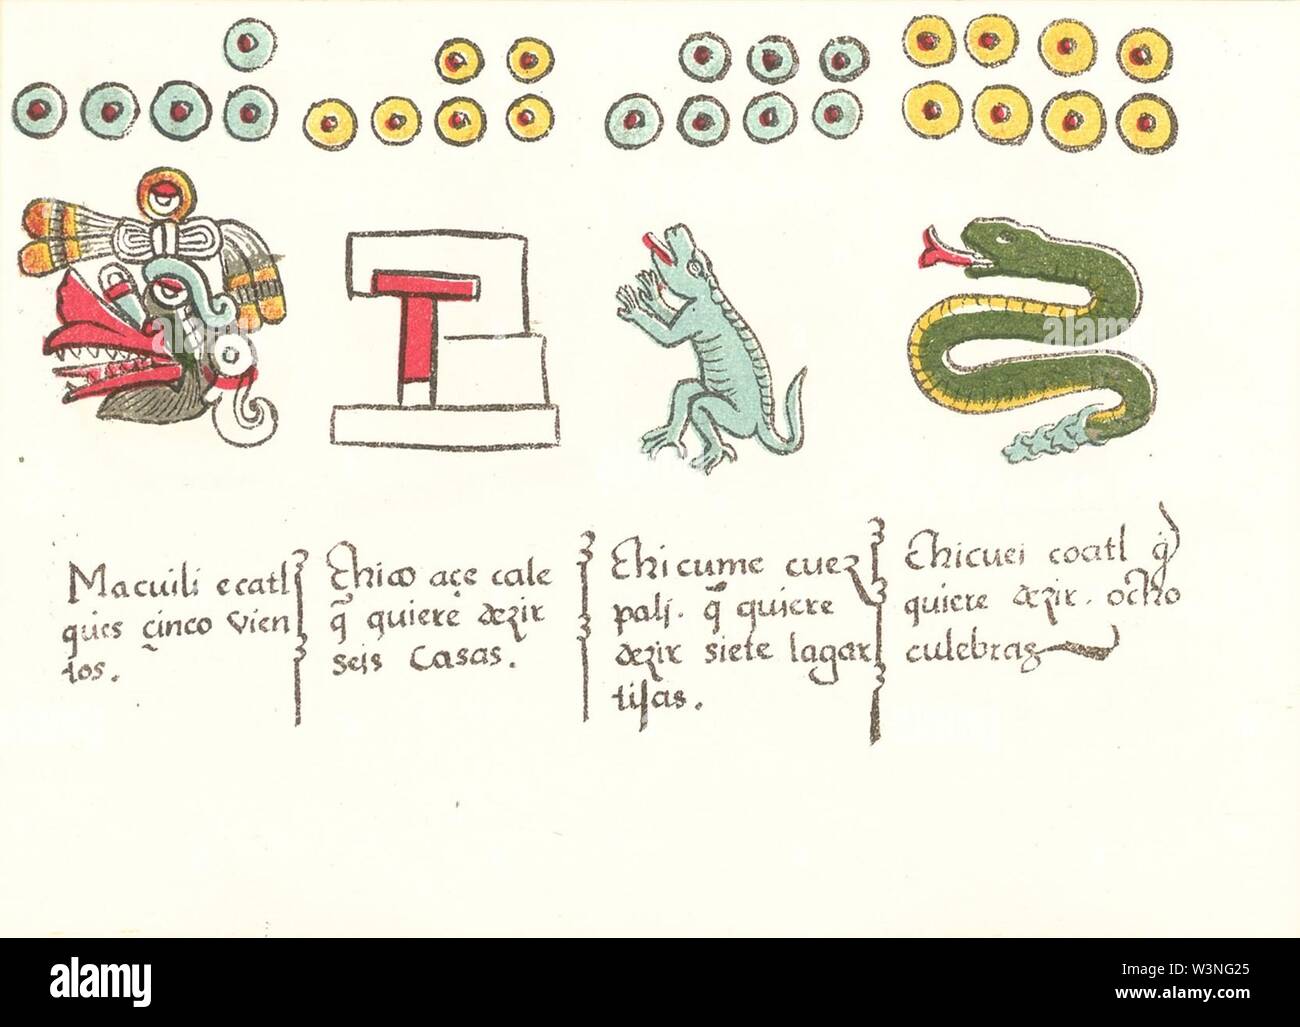 Macuili ecatl
ques çinco vien
tos.
Chico açe cale
q̃ quiere dezir
seis casas.
Chicume cuez
pali. q̃ quiere
dezir siete lagar
tijas.
Chicuei coatl q̃
quiere dezir. ocho
culebras
alamy
alamy
Image ID: W3NG25
www.alamy.com